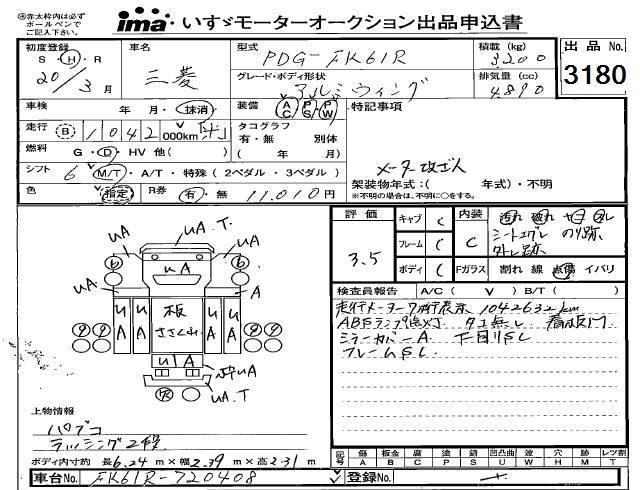 ㊟赤太枠内は必ず
ボールペンで
ご記入下さい。
ima いすゞモーターオークション出品申込書
初度登録 車名 型式 PDG-FK61R 積載 (kg) 3200 出品 No.
S・H・R 三菱 グレード・ボディ形状 排気量 (cc) 3180
20/3月 アルミウィング 4890
車検 年 月・抹消 装備 AC PS PW 特記事項
走行 B 1042 000km タコグラフ
有・無 別体
燃料 G・D・HV 他( ) ( 年 月)
シフト 6 M/T・A/T・特殊(2ペダル・3ペダル) メーター改ざん
架装物年式:( 年式)・不明
色 指定 R券 有・無 11.010円 ※不明の場合は、不明に○をする。
評価 キャブ C 内装 汚れ 破れ
3.5 フレーム C C シートエグレ のり跡
外し跡
ボディ C Fガラス 割れ 線 点傷 イバリ
検査員報告 A/C( ∨ ) B/T( )
走行メーター7桁表示 1042632km
ABSランプ点灯
ミラーカバーA 下回りSL
フレームSL
UA UA.T. UA
UA
A A
UA UA 板 ささくれ UA UA
UA UA
UA.T
上物情報
パブコ
ラッシング2段
ボディ内寸約 長6.24m×幅2.39m×高2.31m
記号 傷 A 板金 B 腐 C 塗 P 錆 S 凹凸曲 U 波 W 穴 H 跡 M レツ割 T
車台No. FK61R-720408 登録No.